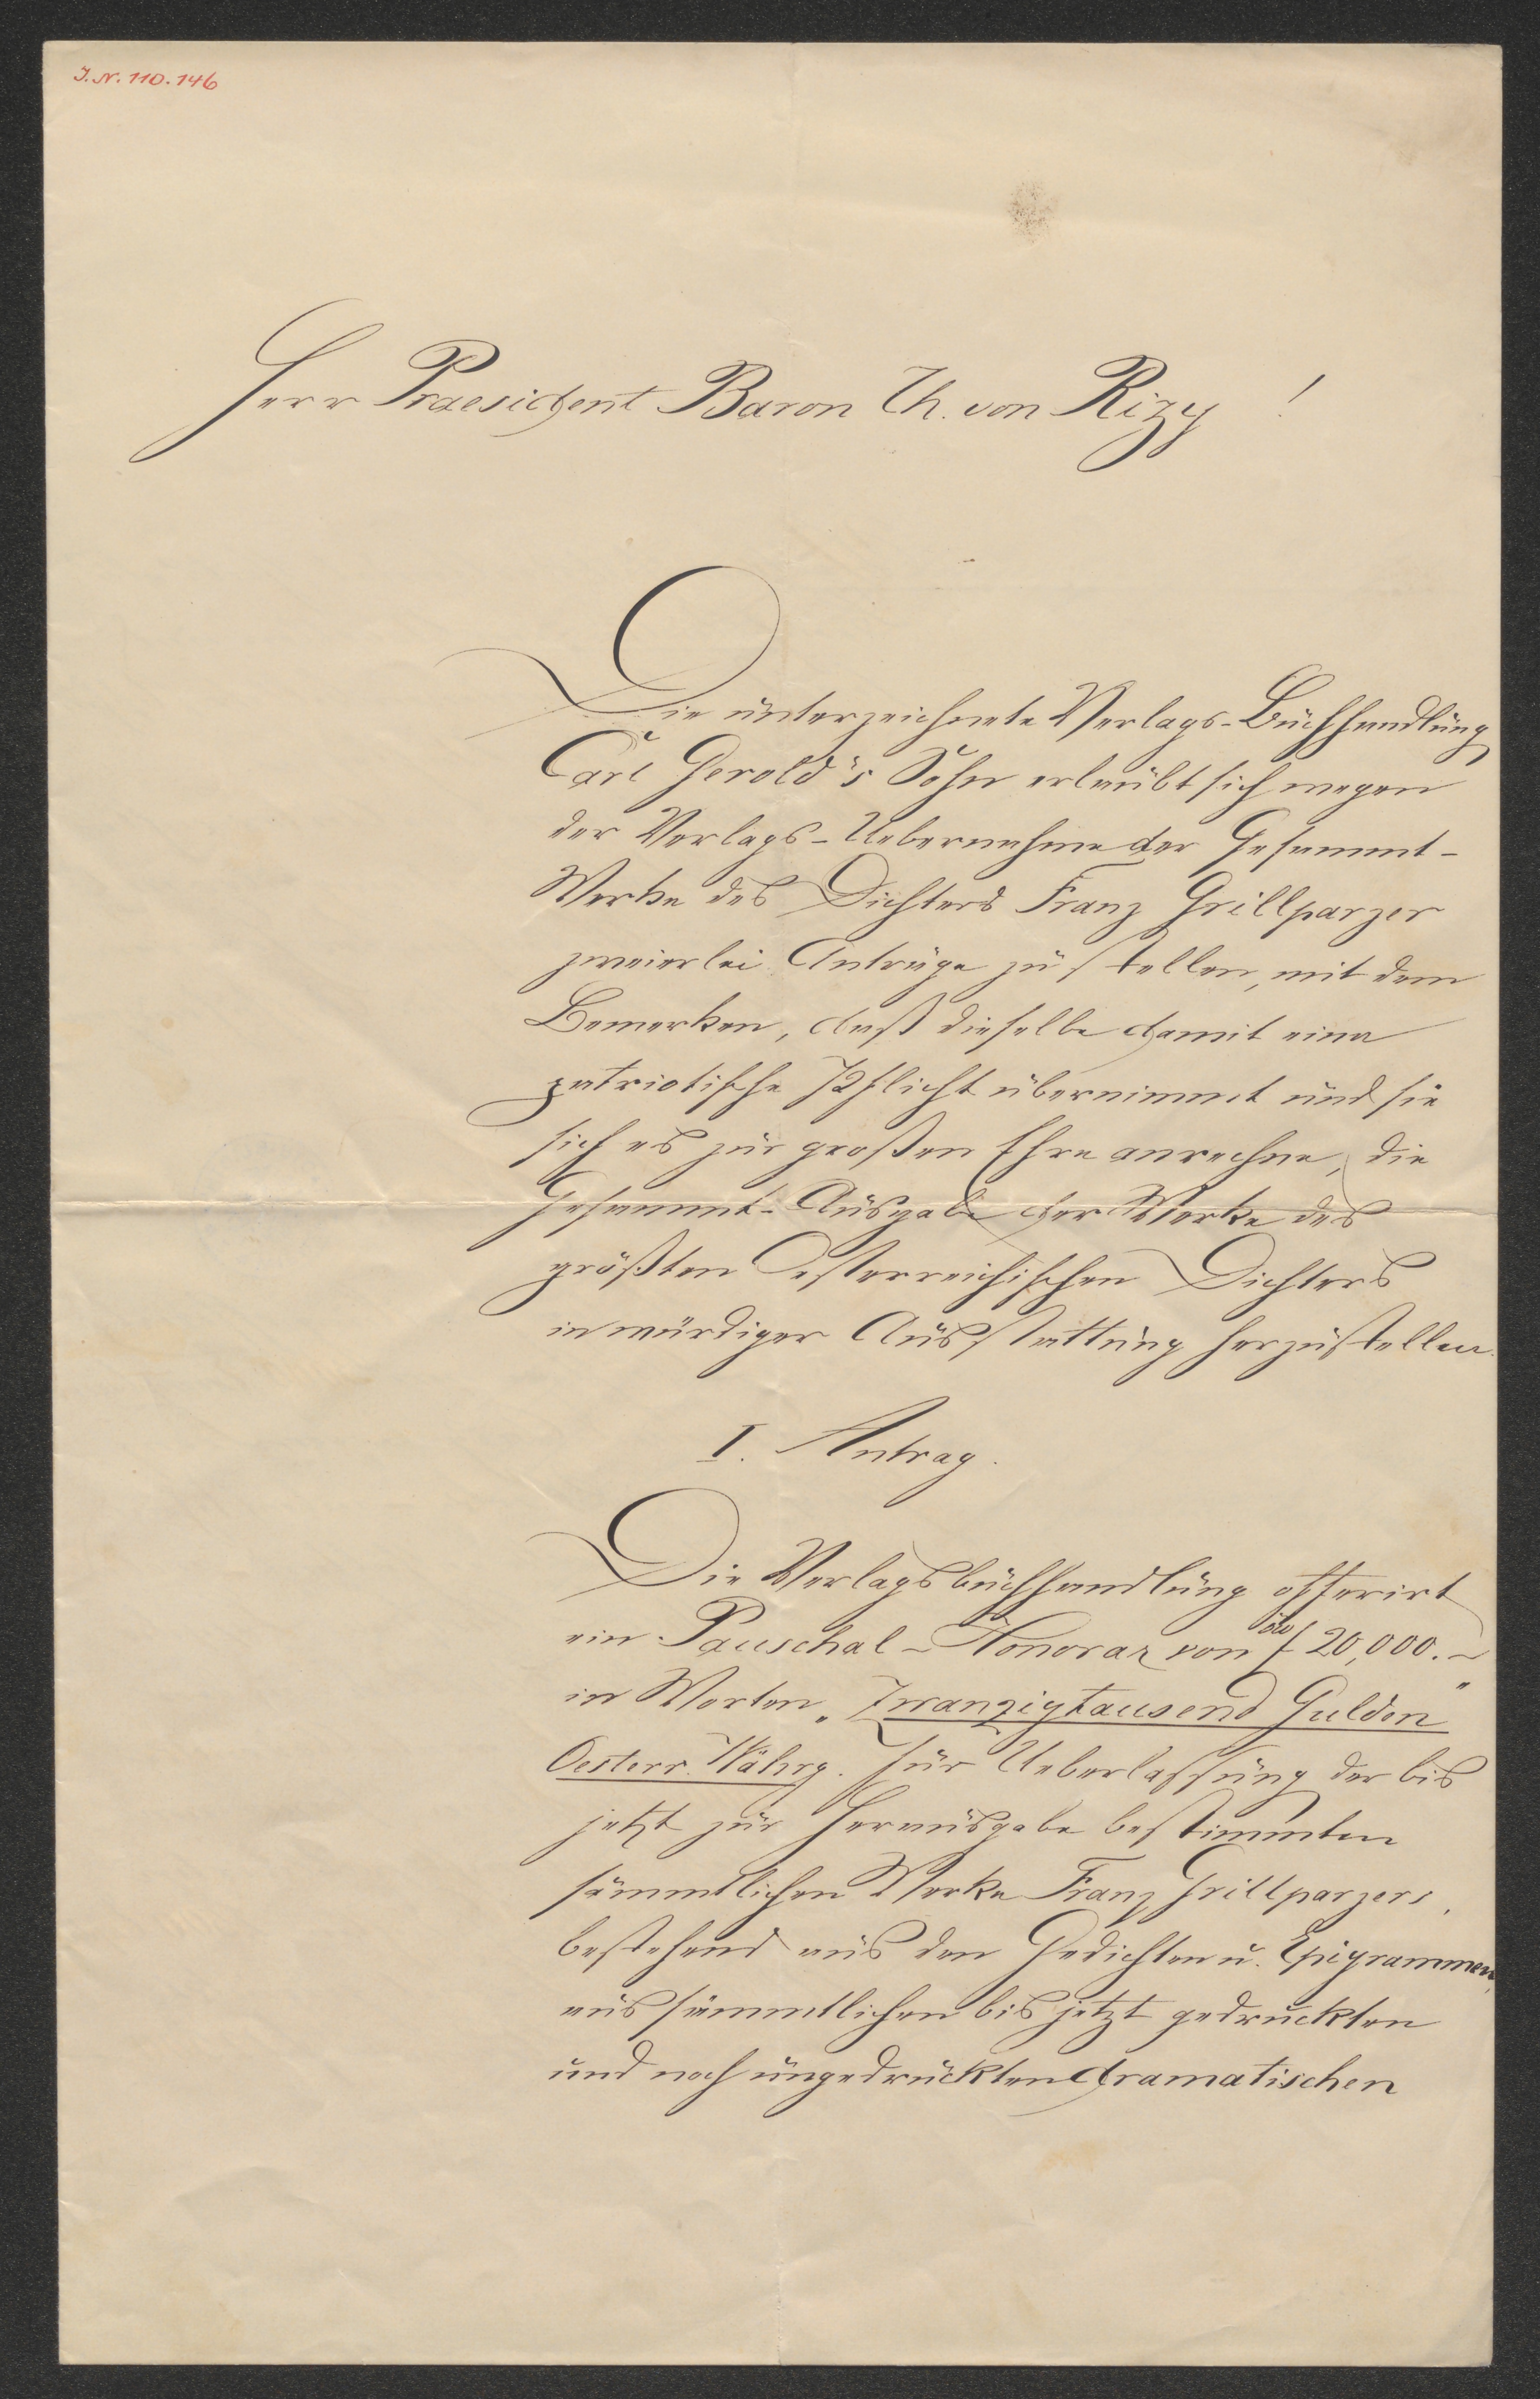 J. N. 110.146
Herr Praesident Baron Th. von Rizy !
Die unterzeichnete Verlags-Buchhandlung
Carl Gerold's Sohn erlaubt sich wegen
der Verlags-Uebernahme der Gesammt-
Werke des Dichters Franz Grillparzer
zweierlei Anträge zu stellen, mit dem
Bemerken, daß dieselbe damit eine
patriotische Pflicht übernimmt und sie
sich es zur großen Ehre anrechne, die
Gesammt-Ausgabe der Werke des
größten Oesterreichischen Dichters
in würdiger Ausstattung herzustellen.
I. Antrag.
Die Verlagsbuchhandlung offerirt
ein Pauschal-Honorar von öw f 20,000.-
in Worten „Zwanzigtausend Gulden"
Oesterr. Währg. für Ueberlassung der bis
jetzt zur Herausgabe bestimmten
sämmtlichen Werke Franz Grillparzers,
bestehend aus den Gedichten u. Epigrammen,
aus sämmtlichen bis jetzt gedruckten
und noch ungedruckten dramatischen